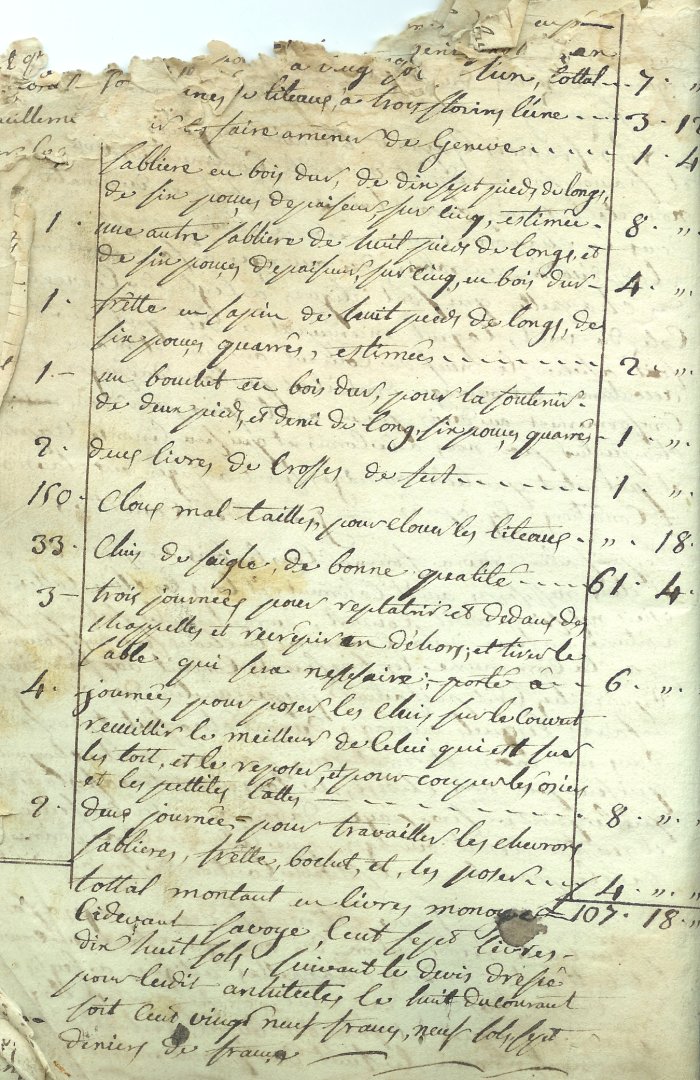 à vingt tun, tottal - - 7 · "
liteaux, à trois florins l'une - - - - 3 · 12
faire amener de Geneve - - - - - 1 · 4
Sabliere en bois dur, de dix sept pieds de longs,
de six pouces depaiseur, sur cinq, estimée - 8 · " ·
1 · une autre Sabliere de huit pieds de longs, et
de six pouces d'epaiseur, sur cinq, en bois dur - 4 · " ·
1 · frette en sapin de huit pieds de longs, de
six pouces quarrés, estimées - - - - - - - 2 · " ·
1 - un bochut en bois dur, pour la soutenir -
de deux pieds, et demie de long, six pouces quarrés - 1 · " ·
2 · deux livres de Crosses de fert - - - - - - 1 · "
150 · Cloux mal taillés, pour clouer les liteaux - " · 18 ·
33 · Cluis de saigle, de bonne qualité - - - - 61 · 4 ·
3 - trois journées pour replatrir et dedans des
chappelles et recrépir en déhors; et tirer le
sable qui sera nessaire; - porté à - - 6 · " ·
4 · journées pour poser les Cluis sur le Couvert
recuillir le meilleur de celui qui est sur
les toit, et le reposer, et pour couper les osiers
et les pettites lattes - - - - - - - - 8 · " · "
2 · deux journée - pour travailler les chevrons
sablieres, frette, bochut, et, les poser - - - 4 · " · "
tottal montant en livres monoyes - 107 · 18 · "
Cidevant Savoye, Cent sept livres -
dix huit sols, suivant le devis dressé
pour lesdit architectes, le huit du courant
soit Cent vingt neuf francs, neuf sols, sept
deniers de france